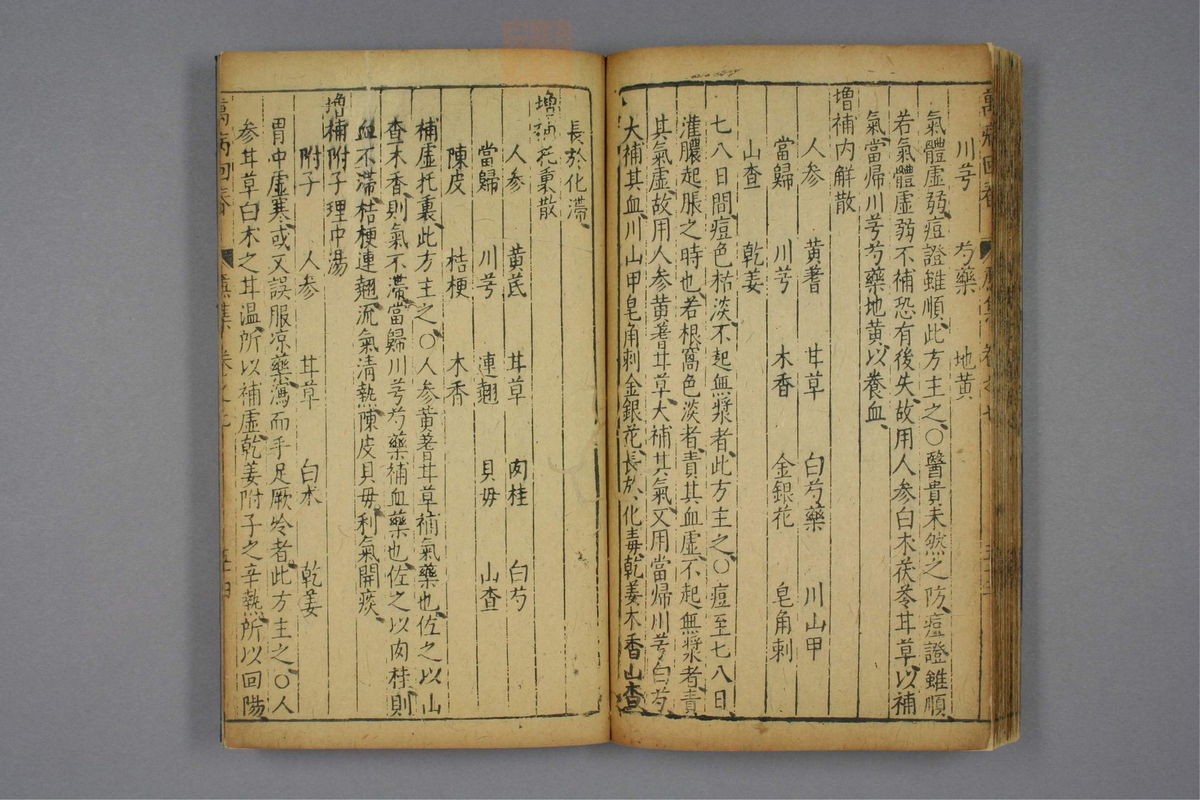 川芎 芍藥 地黄
氣體虛弱痘證雖順此方主之○醫貴未然之防痘證雖順
若氣體虛弱不補恐有後失故用人參白术茯苓甘草以補
氣當帰川芎芍藥地黄以養血
增補内解散
人參 黄蓍 甘草 白芍藥 川山甲
當歸 川芎 木香 金銀花 皂角刺
山查 乾姜
七八日間痘色枯淡不起無漿者此方主之○痘至七八日
灌膿起脹之時也若根窩色淡者責其血虛不起無漿者責
其氣虛故用人參黄蓍甘草大補其氣又用當帰川芎白芍
大補其血川山甲皂角刺金銀花長於化毒乾姜木香山查
長於化滯
增補托裏散
人參 黄芪 甘草 肉桂 白芍
當歸 川芎 連翹 貝母 山查
陳皮 桔梗 木香
補虛托裏此方主之○人參黄蓍甘草補氣藥也佐之以山
查木香則氣不滯當歸川芎芍藥補血藥也佐之以肉桂則
血不滯桔梗連翹流氣清熱陳皮貝母利氣開痰
增補附子理中湯
附子 人參 甘草 白术 乾姜
胃中虛寒或又誤服凉藥瀉而手足厥冷者此方主之○人
參甘草白术之甘溫所以補虛乾姜附子之辛熱所以回陽
萬病回春